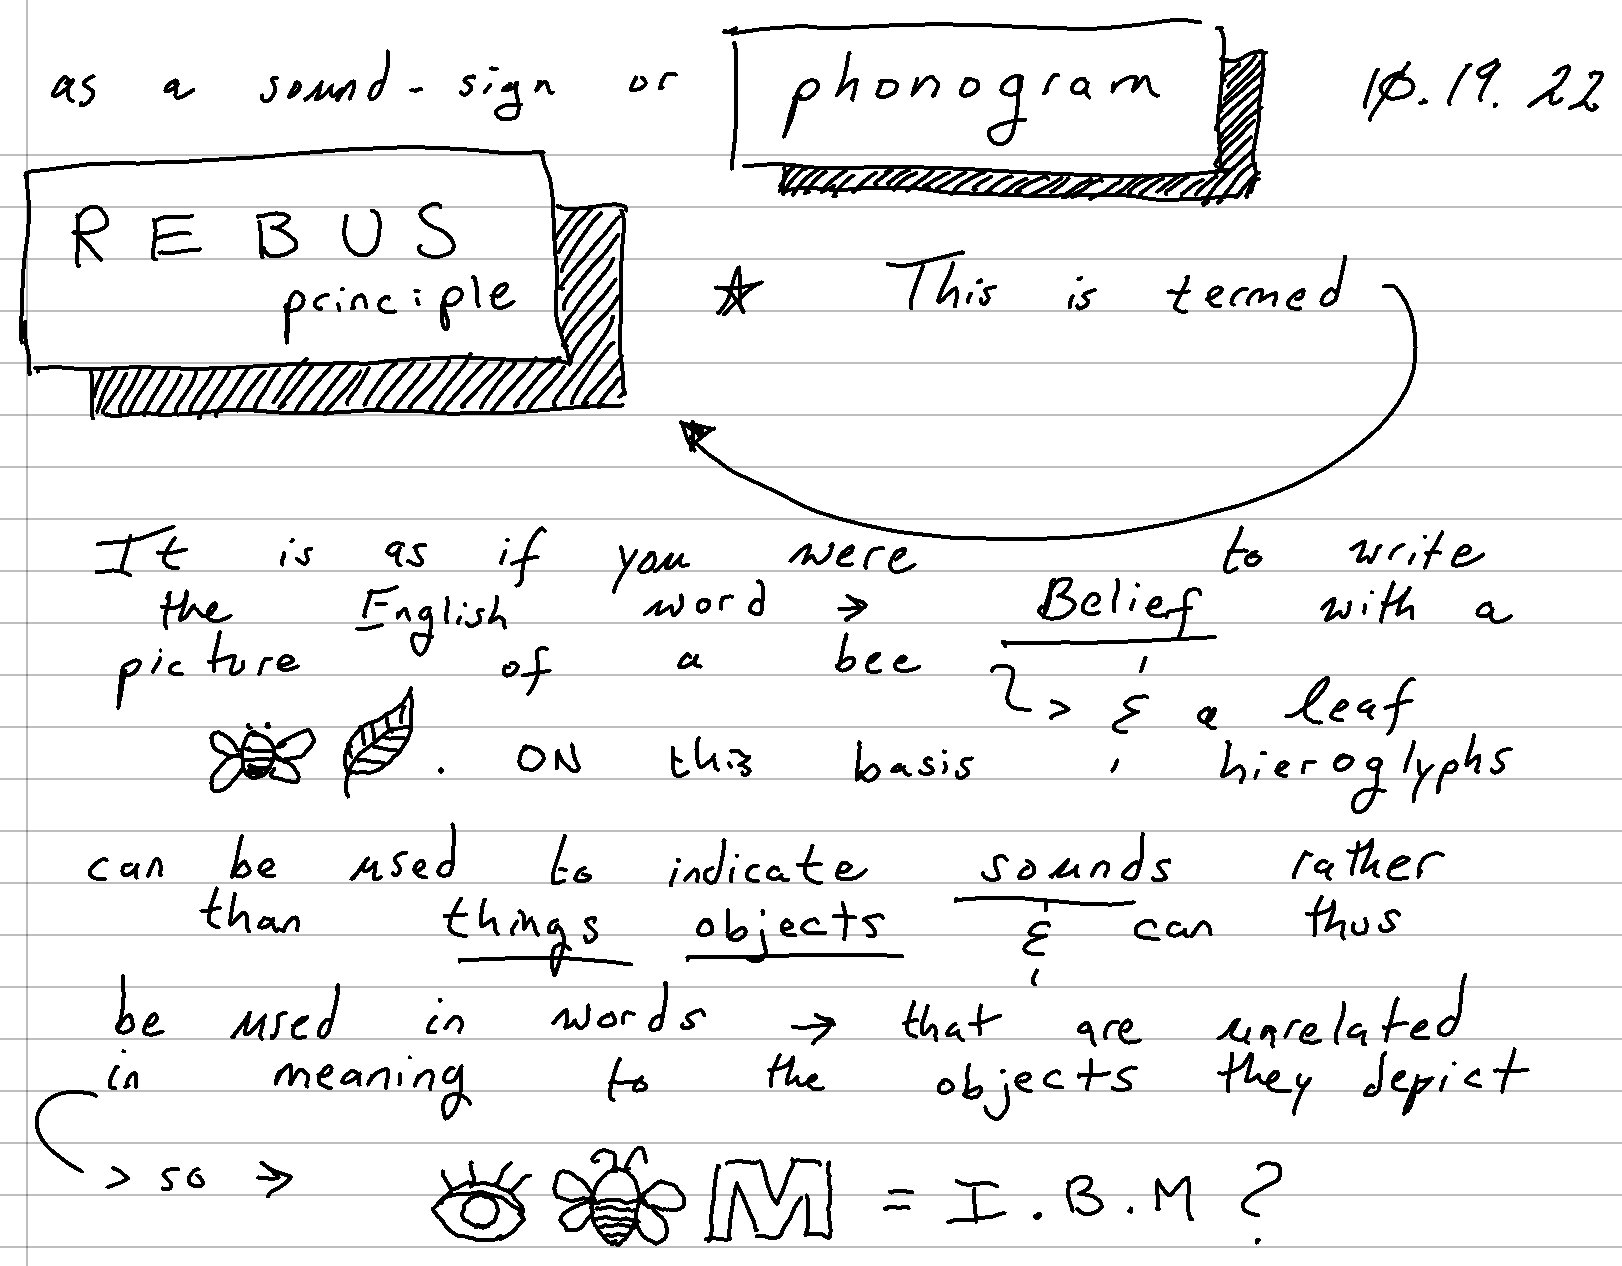 as a sound-sign or phonogram 10.19.22
REBUS
principle
This is termed
It is as if you were to write
the English word → Belief with a
picture of a bee
> & a leaf
. ON this basis , hieroglyphs
can be used to indicate sounds rather
than things objects & can thus
be used in words → that are unrelated
in meaning to the objects they depict
> so → M = I.B.M?